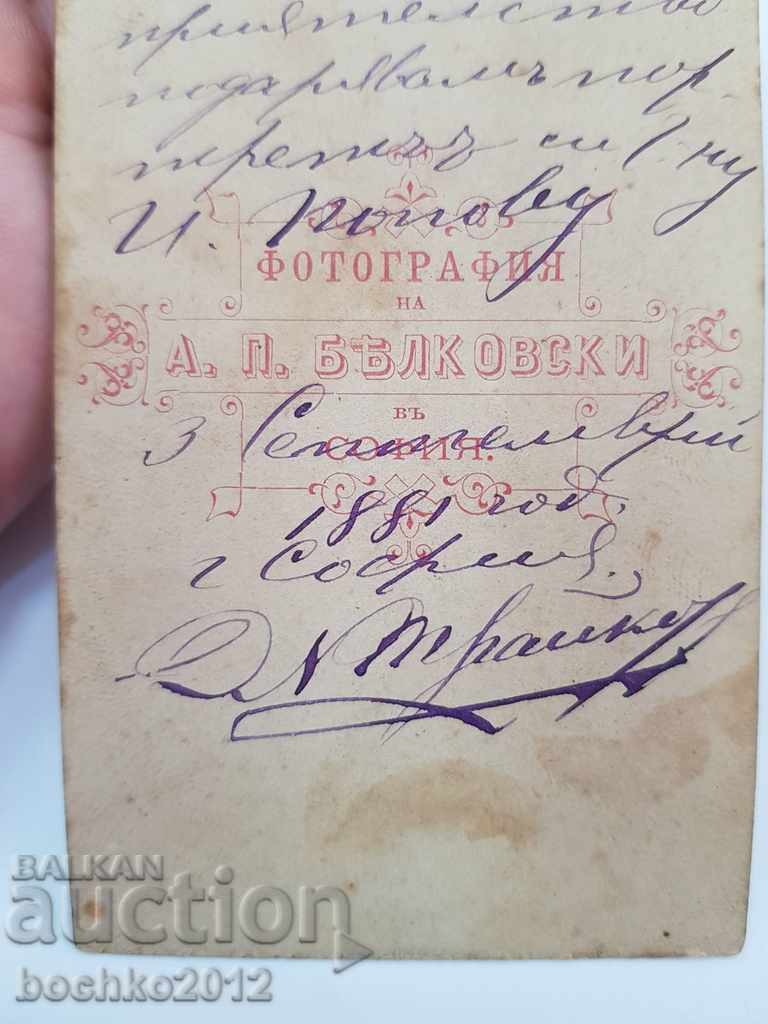 приятелство
подарявамъ пор-
третътъ си Г-ну
И. Попову
ФОТОГРАФИЯ
НА
А. П. БѢЛКОВСКИ
ВЪ
СОФИЯ.
3 Септемврий
1881 год.
г София.
Трайков
BALKAN
auction
bochko2012